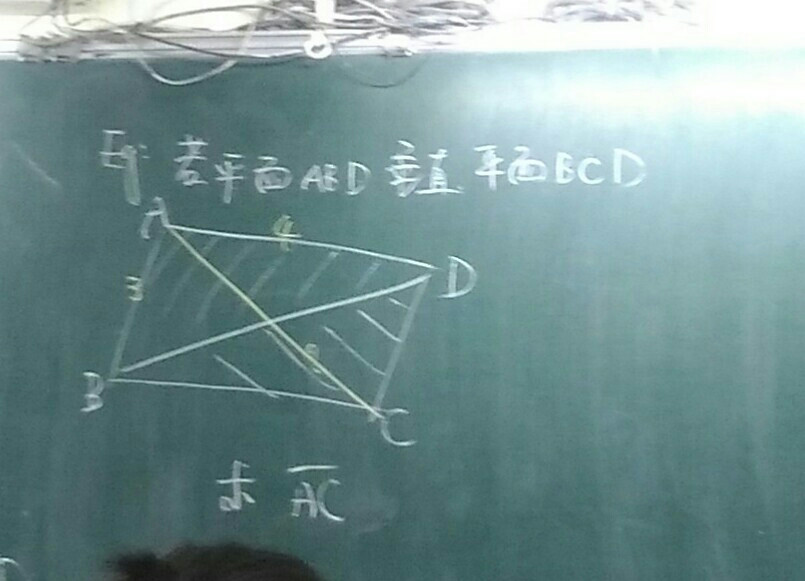 Eg: 若平面ABD垂直平面BCD
A
4
D
3
B
C
求 AC